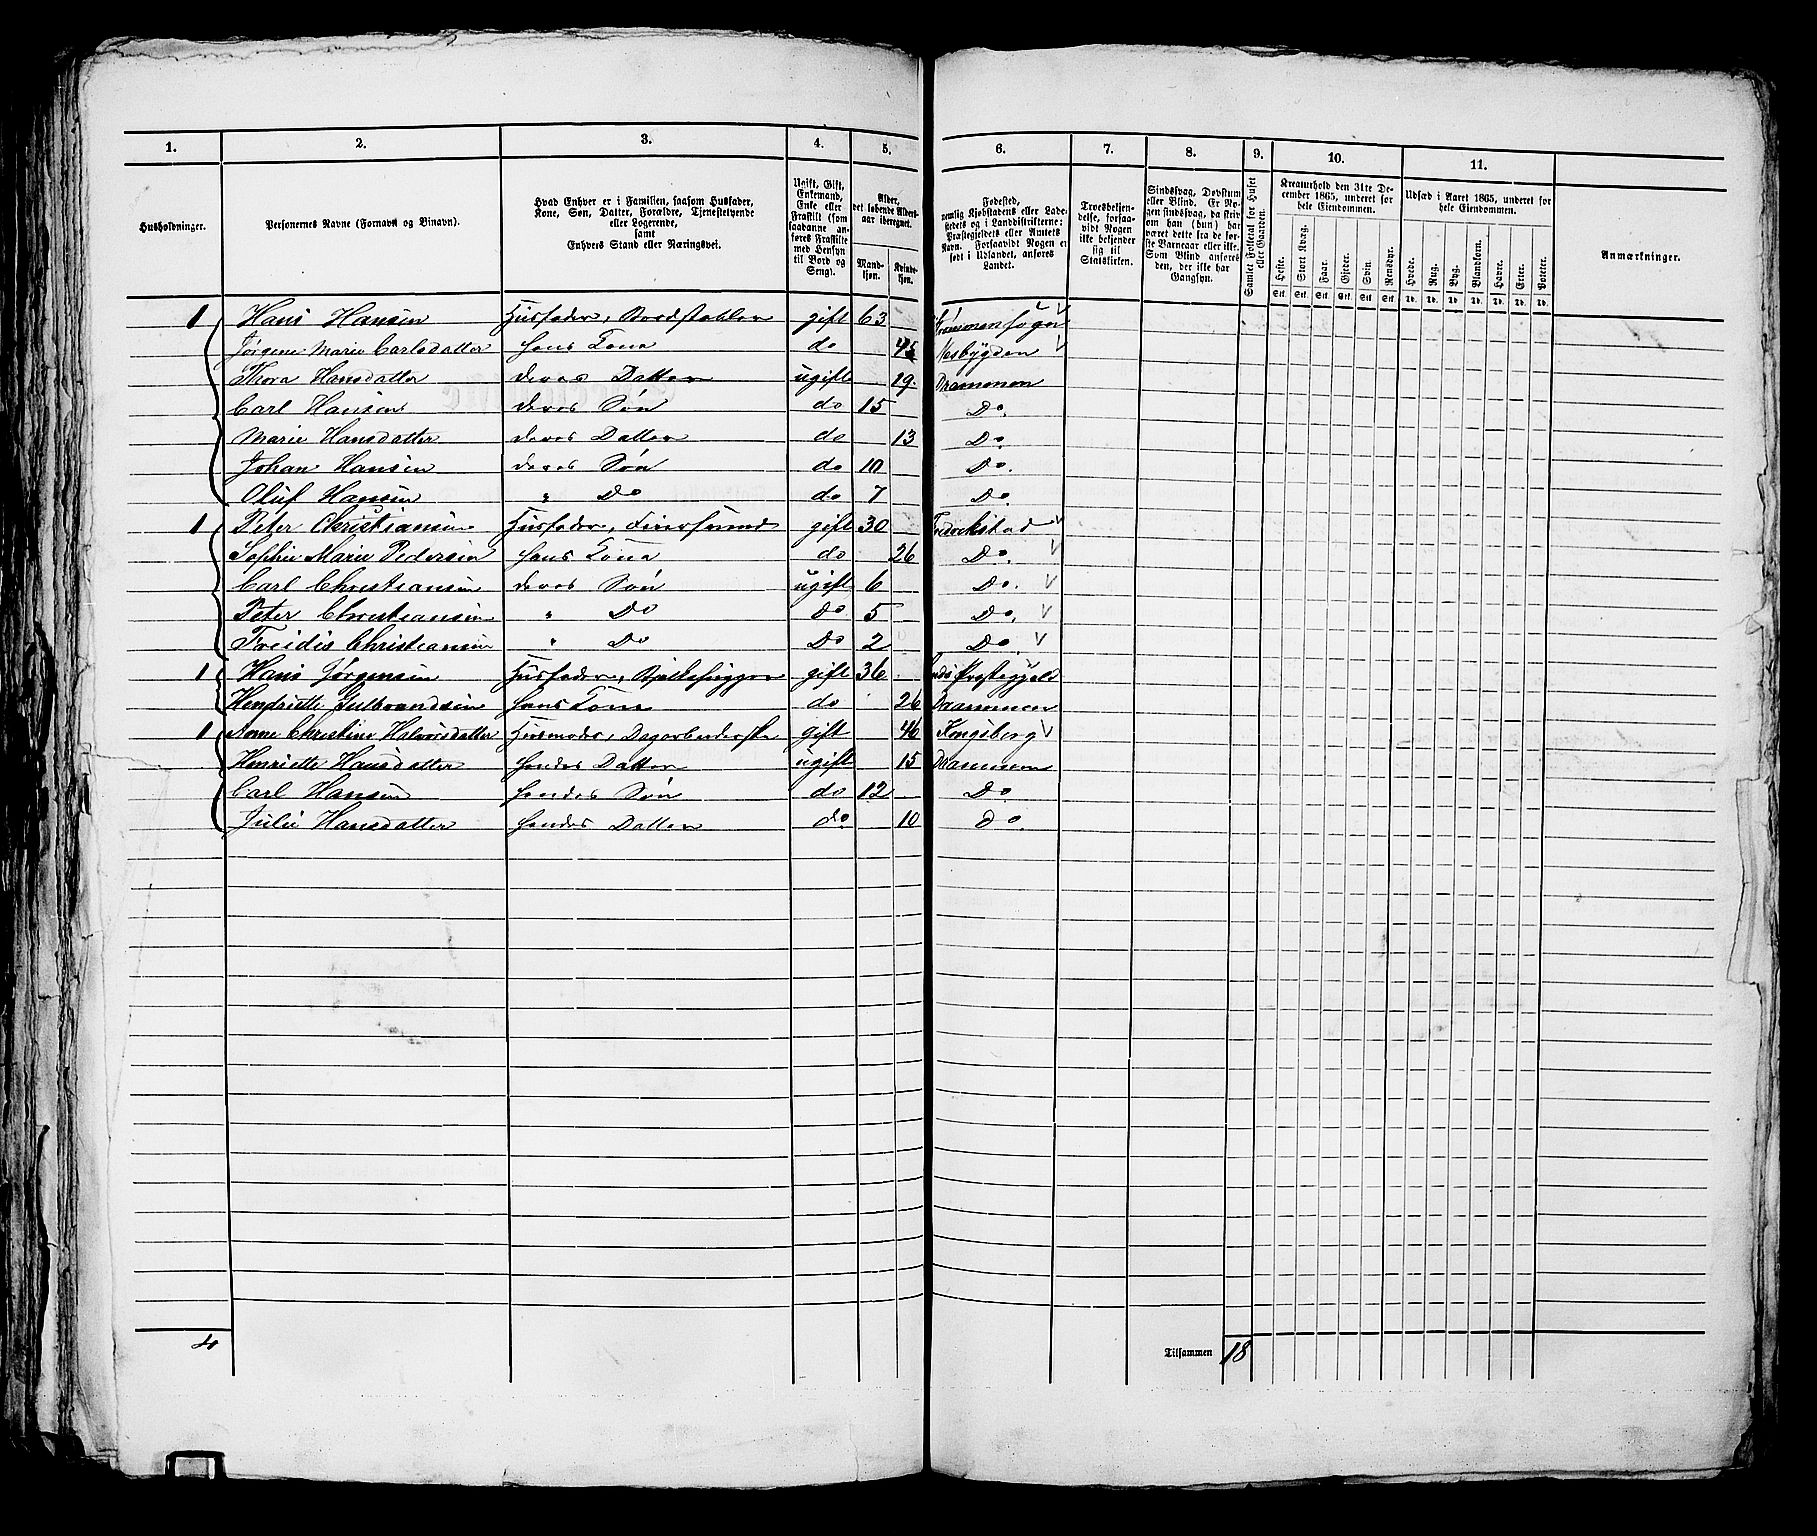 1. 2. 3. 4. 5. 6. 7. 8. 9. 10. 11.
Husholdninger.
Personernes Navne (Fornavn og Binavn).
Hvad Enhver er i Familien, saasom Husfader,
Kone, Søn, Datter, Forældre, Tjenestetyende
eller Logerende,
samt
Enhvers Stand eller Næringsvei.
Ugift, Gift,
Enkemand,
Enke eller
Fraskilt (som
saadanne an-
føres Fraskilte
med Hensyn
til Bord og
Seng).
Alder,
det løbende Alders-
aar iberegnet.
Mand-
kjøn.
Kvinde-
kjøn.
Fødested,
nemlig Kjøbstadens eller Lade-
stedets og i Landdistrikterne:
Præstegjeldets eller Amtets
Navn. Forsaavidt Nogen er
født i Udlandet, anføres
Landet.
Troesbekjen-
delse, forsaa-
vidt Nogen
ikke bekjender
sig til
Statskirken.
Sindssvag, Døvstum
eller Blind. Er No-
gen sindssvag, da skriv
om han (hun) har
været dette fra de før-
ste Barneaar eller ikke.
Som Blind anføres
den, der ikke har
Gangsyn.
Samlet Folketal for Huset
eller Gaarden.
Kreaturhold den 31te De-
cember 1865, underet for
hele Eiendommen.
Heste. Stort Kvæg. Faar. Gjeder. Svin. Rensdyr.
Stk. Stk. Stk. Stk. Stk. Stk.
Udsæd i Aaret 1865, underet for
hele Eiendommen.
Hvede. Rug. Byg. Blandkorn. Havre. Erter. Poteter.
Td. Td. Td. Td. Td. Td. Td.
Anmærkninger.
1 Hans Hansen Husfader, Bordstabler gift 63
Jørgene Marie Carlsdatter hans Kone do Nesbygden
Thora Hansdatter deres Datter ugift 19. Drammen
Carl Hansen deres Søn do 15 Do.
Marie Hansdatter deres Datter do 13 Do.
Johan Hansen deres Søn do 10 Do.
Oluf Hansen " Do do 7 Do
1 Peter Christiansen Husfader, gift 30 Fredrekstad
Sophie Marie Pedersen hans Kone do 26 Do.
Carl Christiansen deres Søn ugift 6 Do.
Peter Christiansen " Do Do 5 Do.
Christiansen " Do Do 2 Do.
1 Hans Jørgensen Husfader, Bjelkehugger gift 36 Præstegjeld
Henriette Gulbrandsen hans Kone do 26 Drammen
1 Anne Christine Halvorsdatter Husmoder, gift 46 Kongsberg
Henriette Hansdatter hendes Datter ugift 15 Drammen
Carl Hansen hendes Søn do 12 Do
Julie Hansdatter hendes Datter do. 10 do.
4
Tilsammen 18